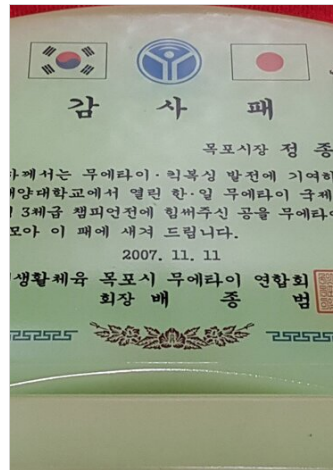 감 사 패
목포시장 정 종
께서는 무에타이·킥복싱 발전에 기여하
해양대학교에서 열린 한·일 무에타이 국제
3체급 챔피언전에 힘써주신 공을 무에타이
모아 이 패에 새겨 드립니다.
2007. 11. 11
생활체육 목포시 무에타이 연합회
회장 배 종 범